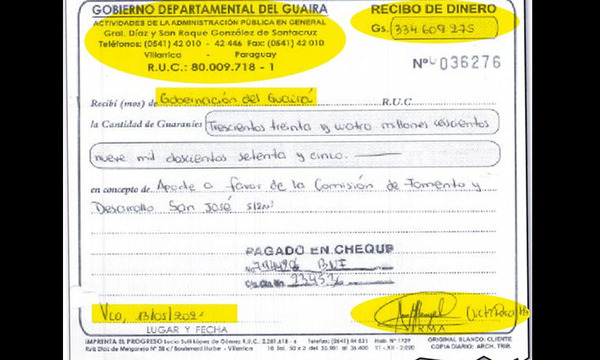 GOBIERNO DEPARTAMENTAL DEL GUAIRA
ACTIVIDADES DE LA ADMINISTRACIÓN PÚBLICA EN GENERAL
Gral. Díaz y San Roque González de Santacruz
Teléfonos: (0541) 42 010 - 42 446 Fax: (0541) 42 010
Villarrica - Paraguay
R.U.C.: 80.009.718 - 1
RECIBO DE DINERO
Gs. 334.609.275
Nº 036276
Recibí (mos) de Gobernación del Guairá R.U.C.
la Cantidad de Guaraníes Trescientos treinta y cuatro millones seiscientos
nueve mil doscientos setenta y cinco.
en concepto de Aporte a favor de la Comisión de Fomento y
Desarrollo San José
PAGADO EN CHEQUE
No
Vca, 13/05/2021
LUGAR Y FECHA
FIRMA
IMPRENTA EL PROGRESO
ORIGINAL BLANCO: CLIENTE
COPIA DIARIO: ARCH. TRIB.